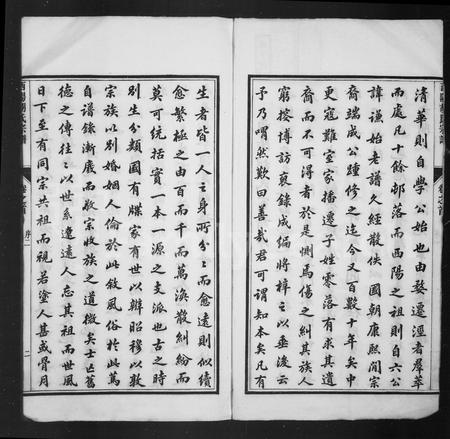 清華則自學公始也由婺遷涇者羣萃
而處凡十餘邨落而西陽之祖則自六公
諱謙始老譜久經散佚國朝康熙間宗
裔端成公踵修之迄今又百數十年矣中
更寇難室家播遷子姓零落有求其遺
裔而不可得者於是惻焉傷之糾其族人
窮搜博訪裒錄成編將梓之以垂後云
予乃喟然歎曰善哉君可謂知本矣凡有
生者皆一人之身所分分而愈遠則似續
愈繁極之由百而千而萬渙散糾紛而
莫可統括實一本一源之支派也古之時
別生分類國有牒家有世以辨昭穆以敦
宗族以別婚姻人倫於此敘風俗於此篤
自譜錄漸廢而敬宗收族之道微矣士亡舊
德之傳往往以世系遼遠人忘其祖而世風
日下至有同宗共祖而視若塗人甚或骨月
卷之首
序二
二